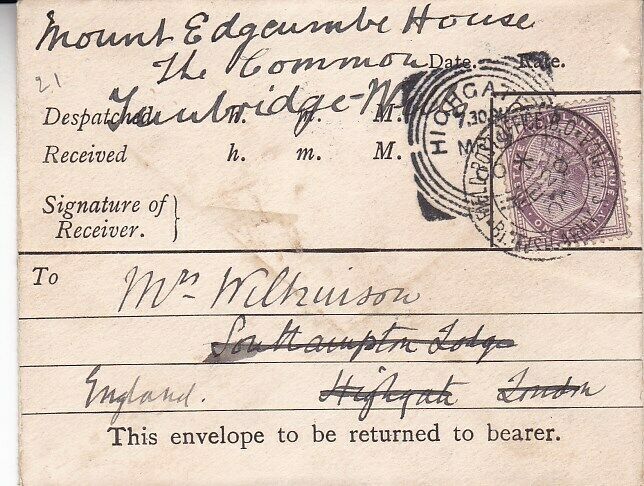 Mount Edgcumbe House
The Common
Date. Rate.
Tunbridge-
21
Despatched h. m. M.
Received h. m. M.
Signature of
Receiver. }
HIGHGATE
7.30
FIELD POST OFFICE
BRITISH ARMY
To Mrs Wilkinson
Southampton Lodge
England. Highgate London
This envelope to be returned to bearer.